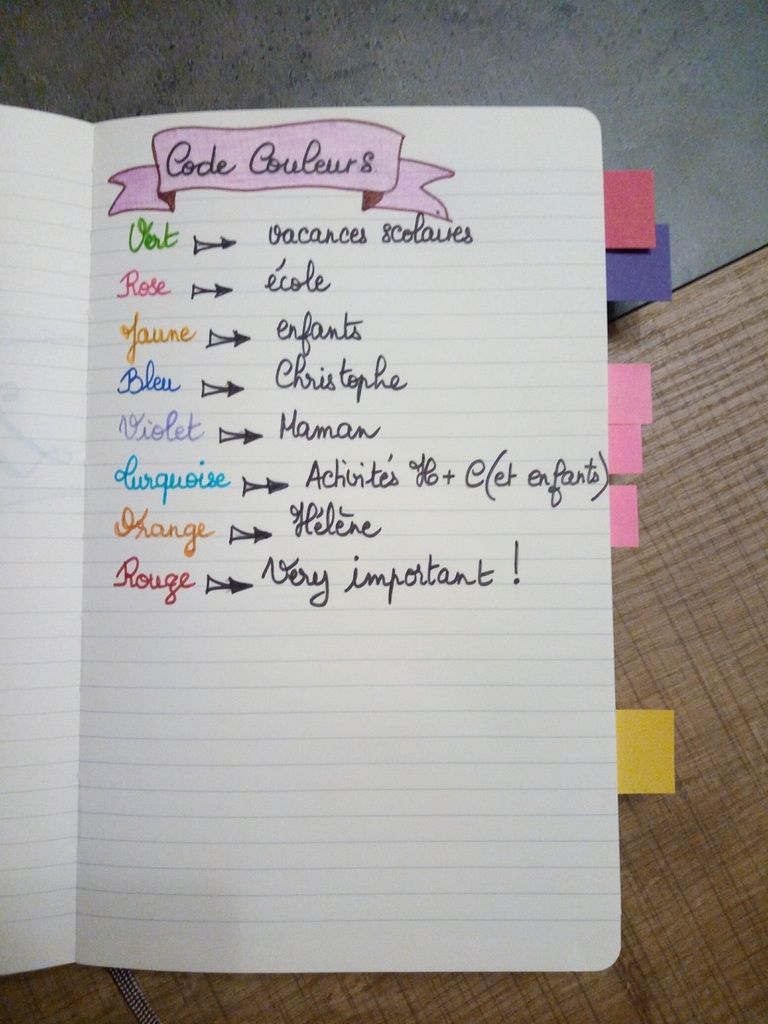 Code Couleurs
Vert → vacances scolaires
Rose → école
Jaune → enfants
Bleu → Christophe
Violet → Maman
Turquoise → Activités H + C (et enfants)
Orange → Hélène
Rouge → Very important !